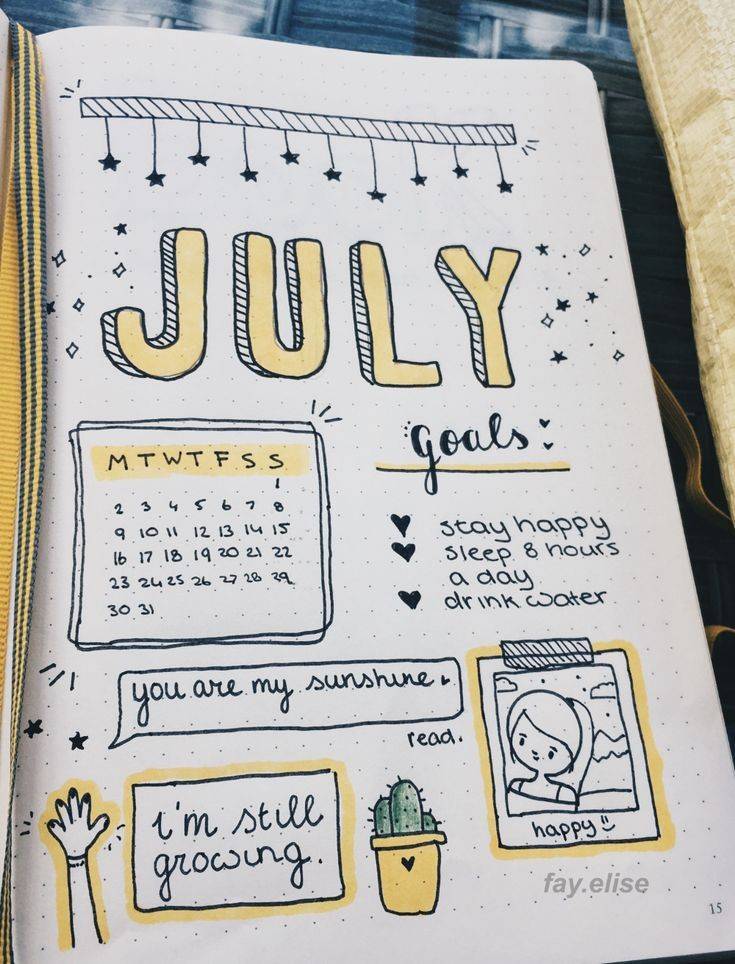 JULY
goals:
M T W T F S S
1
2 3 4 5 6 7 8
9 10 11 12 13 14 15
16 17 18 19 20 21 22
23 24 25 26 27 28 29
30 31
stay happy
sleep 8 hours
a day
drink water
you are my sunshine
read.
happy
i'm still
growing.
fay.elise
15